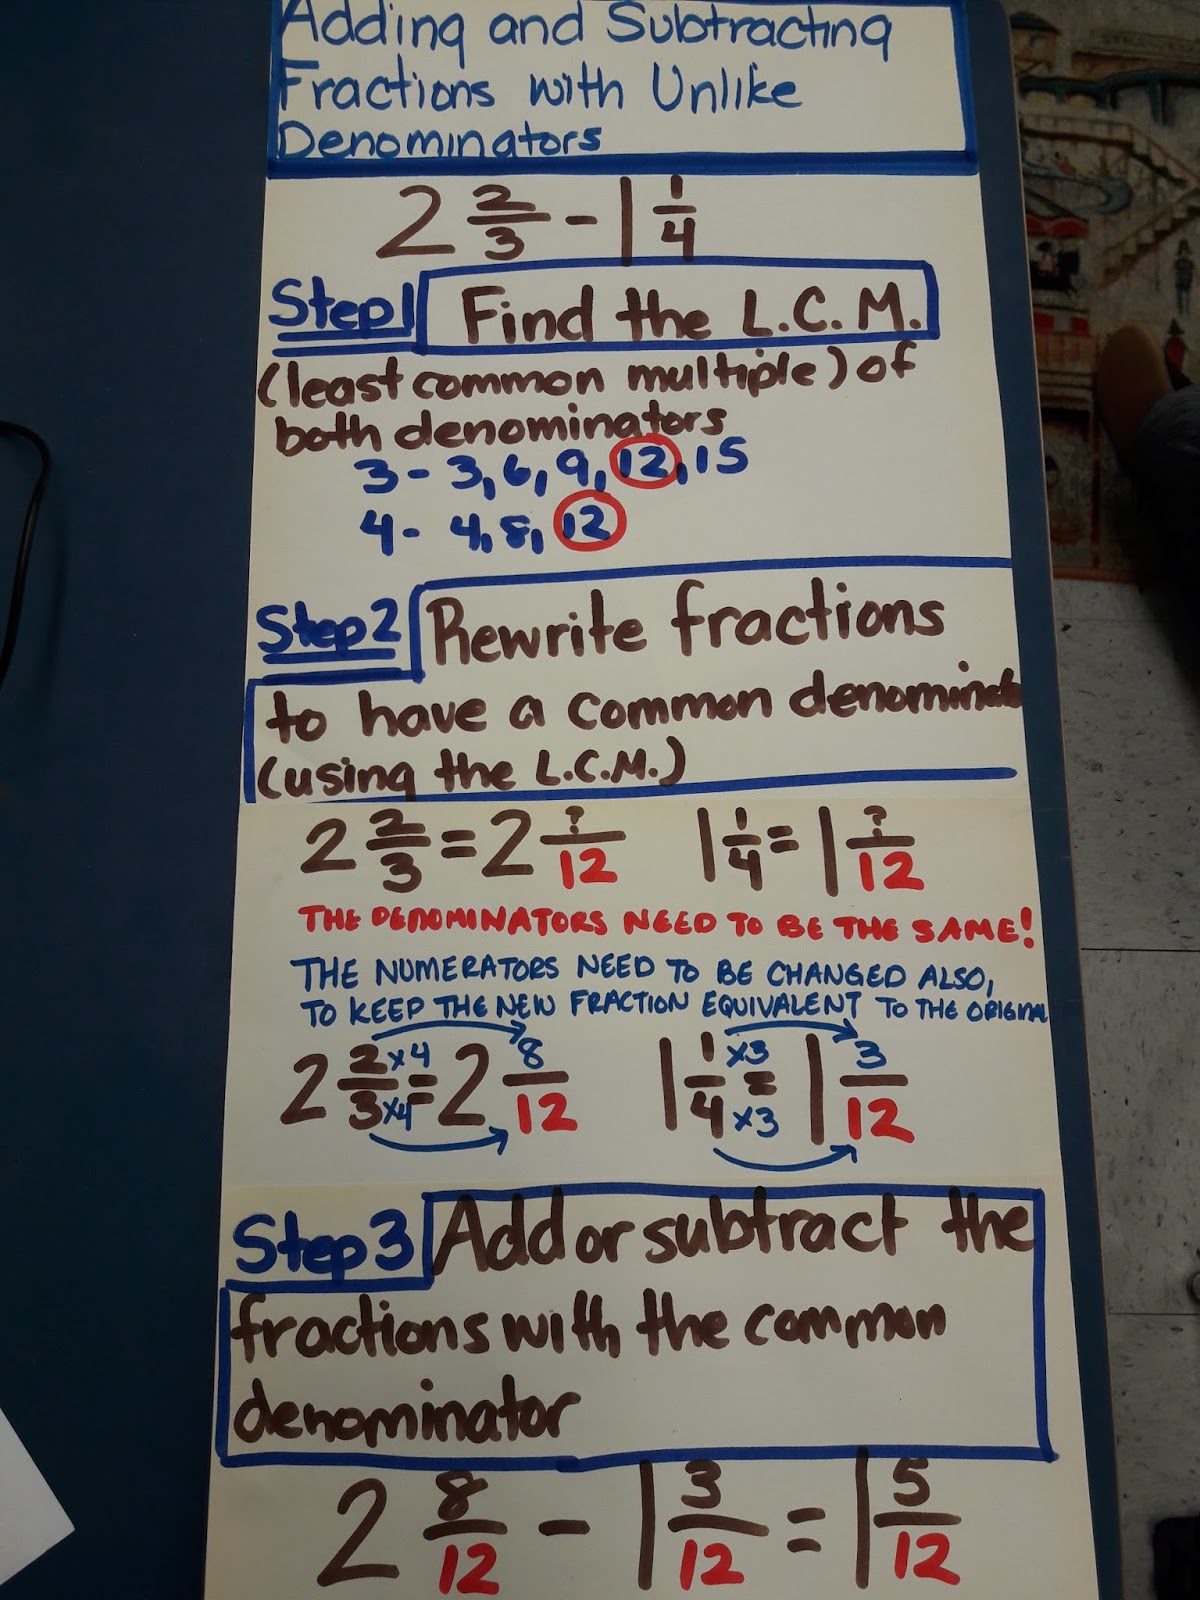 Adding and Subtracting
Fractions with Unlike
Denominators
2 2/3 - 1 1/4
Step 1 Find the L.C.M.
(least common multiple) of
both denominators
3 - 3, 6, 9, 12, 15
4 - 4, 8, 12
Step 2 Rewrite fractions
to have a common denominato
(using the L.C.M.)
2 2/3 = 2 ?/12 1 1/4 = 1 ?/12
THE DENOMINATORS NEED TO BE THE SAME!
THE NUMERATORS NEED TO BE CHANGED ALSO,
TO KEEP THE NEW FRACTION EQUIVALENT TO THE ORIGINAL
2 2/3 ×4 ×4 = 2 8/12 1 1/4 ×3 ×3 = 1 3/12
Step 3 Add or subtract the
fractions with the common
denominator
2 8/12 - 1 3/12 = 1 5/12